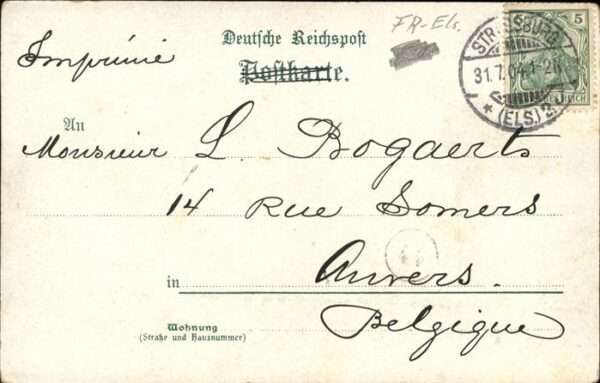 FR-Els.
Imprimé
Deutsche Reichspost
Postkarte.
5
STRASSBURG
31.7.04.1-2N
* (ELS.) 2
REICH
An
Monsieur L. Bogaerts
14 Rue Somers
in Anvers.
Belgique
Wohnung
(Straße und Hausnummer)